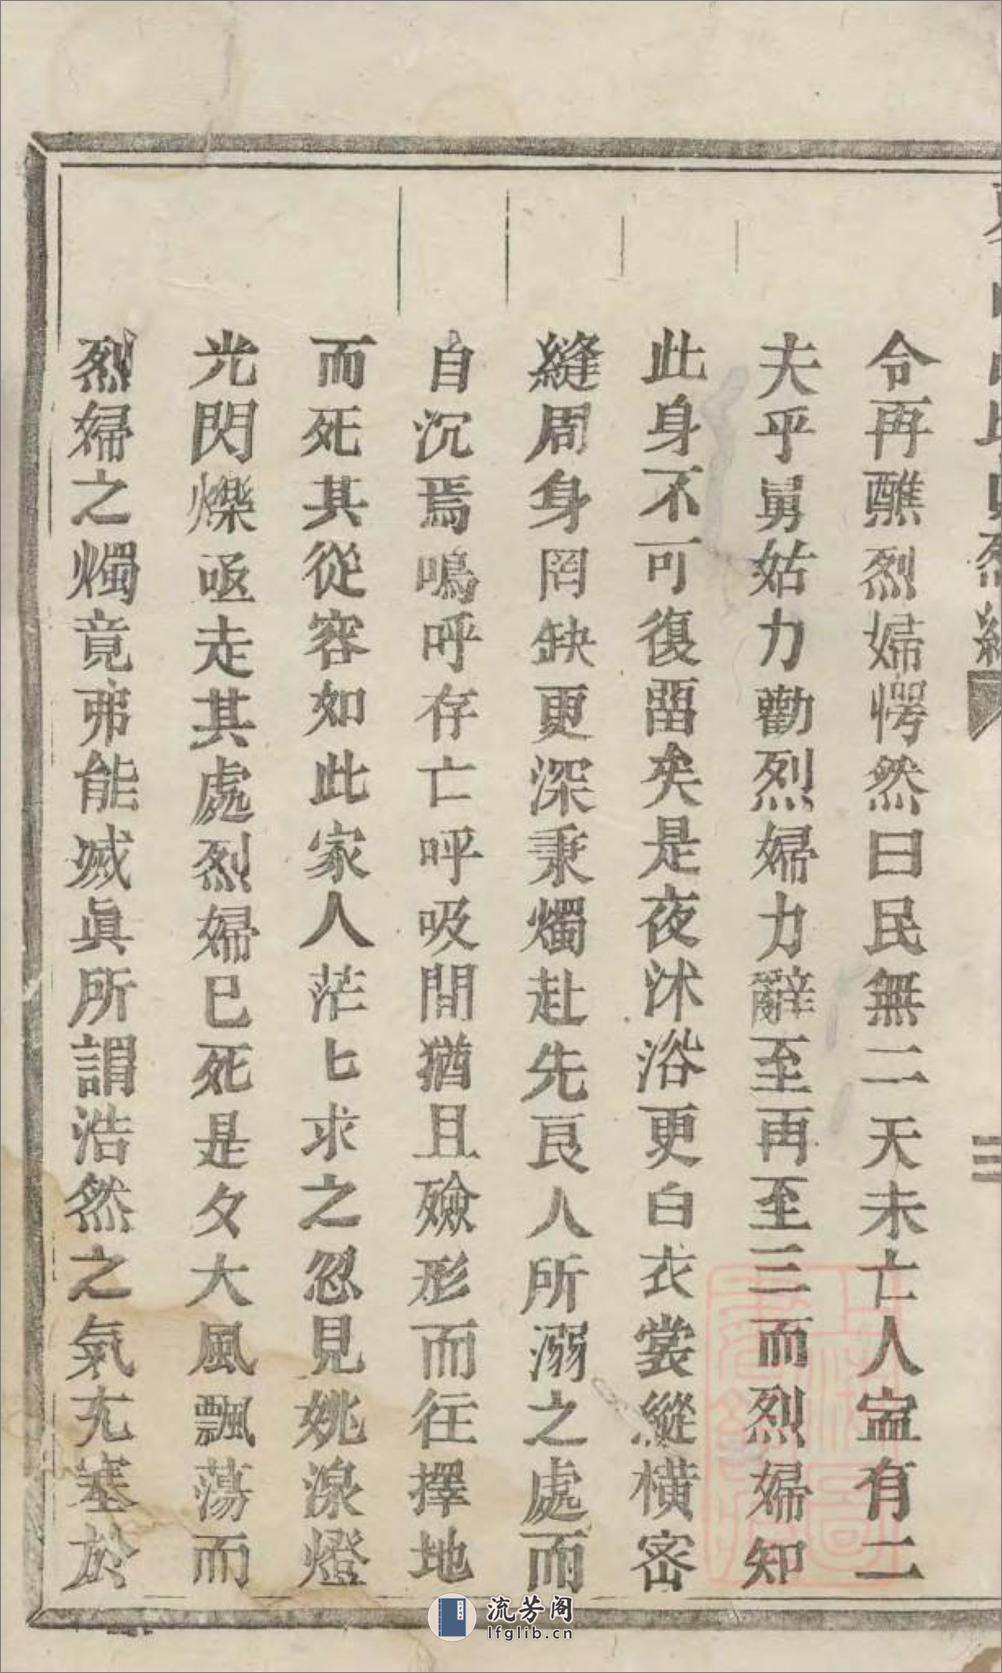 令再醮烈婦愕然曰民無二天未亡人寍有二
夫乎舅姑力勸烈婦力辭至再至三而烈婦知
此身不可復畱矣是夜沐浴更白衣裳縱橫密
縫周身罔缺更深秉燭赴先良人所溺之處而
自沉焉嗚呼存亡呼吸間猶且殮形而往擇地
而死其從容如此家人茫匕求之忽見姚湶燈
光閃爍亟走其處烈婦已死是夕大風飄蕩而
烈婦之燭竟弗能滅眞所謂浩然之氣充塞於
流芳阁
lfglib.cn